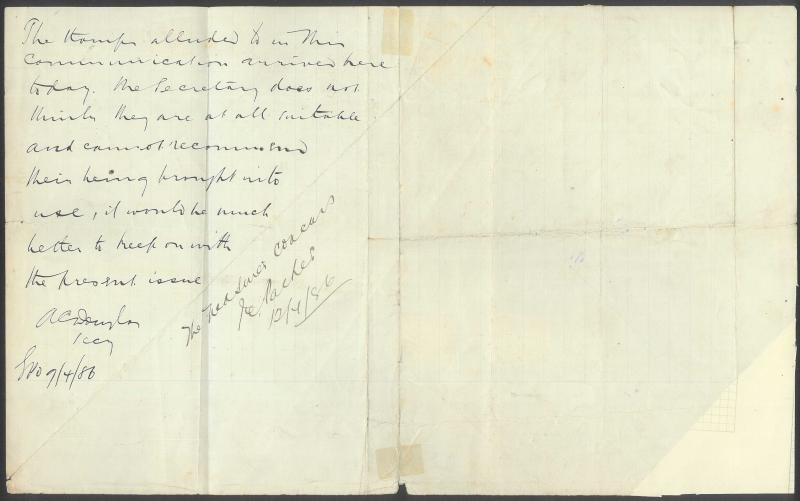 The stamps alluded to in this
communication arrived here
today. The Secretary does not
think they are at all suitable
and cannot recommend
their being brought into
use, it would be much
better to keep on with
the present issue
AC Douglas
Secy
GPO 9/4/86
The Treasurer concurs
12/4/86